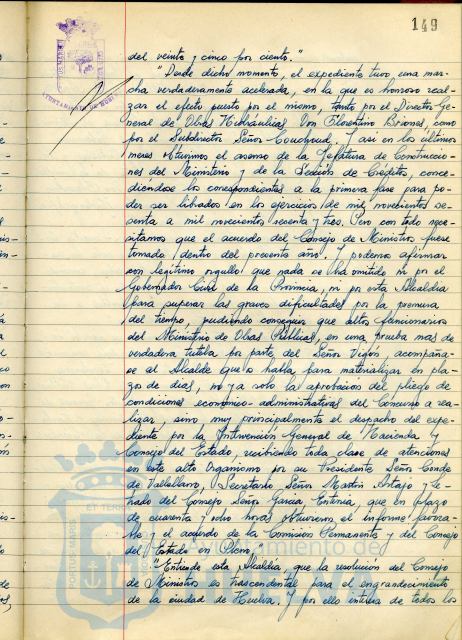 149
del veinte y cinco por ciento."
"Desde dicho momento, el expediente tuvo una mar-
cha verdaderamente acelerada, en la que es honroso real-
zar el efecto puesto por el mismo, tanto por el Director Ge-
neral de Obras Hidráulicas Don Florentino Briones, como
por el Subdirector Señor Couchoud. Y así en los últimos
meses obtuvimos el asenso de la Jefatura de Construccio-
nes del Ministerio y de la Sección de Créditos, conce-
diendose los correspondientes a la primera fase para po-
der ser librados en los ejercicios de mil novecientos se-
senta a mil novecientos sesenta y tres. Pero con todo nece-
sitamos que el acuerdo del Consejo de Ministros fuese
tomado dentro del presente año. Y podemos afirmar
con legítimo orgullo que nada se ha omitido ni por el
Gobernador Civil de la Provincia, ni por esta Alcaldía
para superar las graves dificultades por la premura
del tiempo, pudiendo conseguir que altos funcionarios
del Ministerio de Obras Públicas, en una prueba mas de
verdadera tutela por parte del Señor Vigón, acompaña-
se al Alcalde que os habla para materializar en pla-
zos de dias, no ya solo la aprobación del pliego de
condiciones económico-administrativas del Concurso a rea-
lizar, sino muy principalmente el despacho del expe-
diente por la Intervención General de Hacienda y
Consejo del Estado, recibiendo toda clase de atenciones
en este alto Organismo por su Presidente Señor Conde
de Vallellano, Secretario Señor Martín Artajo y Le-
trado del Consejo Señor García Enterría, que en plazo
de cuarenta y ocho horas obtuvieron el informe favora-
ble y el acuerdo de la Comisión Permanente y del Consejo
del Estado en Pleno."
"Entiende esta Alcaldía, que la resolución del Consejo
de Ministros es trascendental para el engrandecimiento
de la ciudad de Huelva. Y por ello entiera de todos los